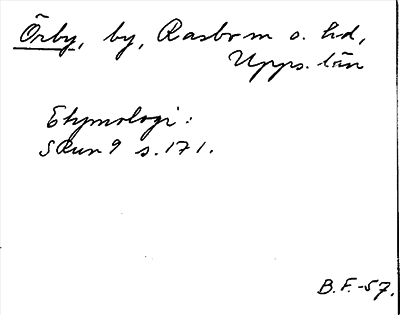 Örby, by, Rasbo sn o. hd,
Upps. län
Etymologi:
SRun 9 s. 171.
B.F.-57.